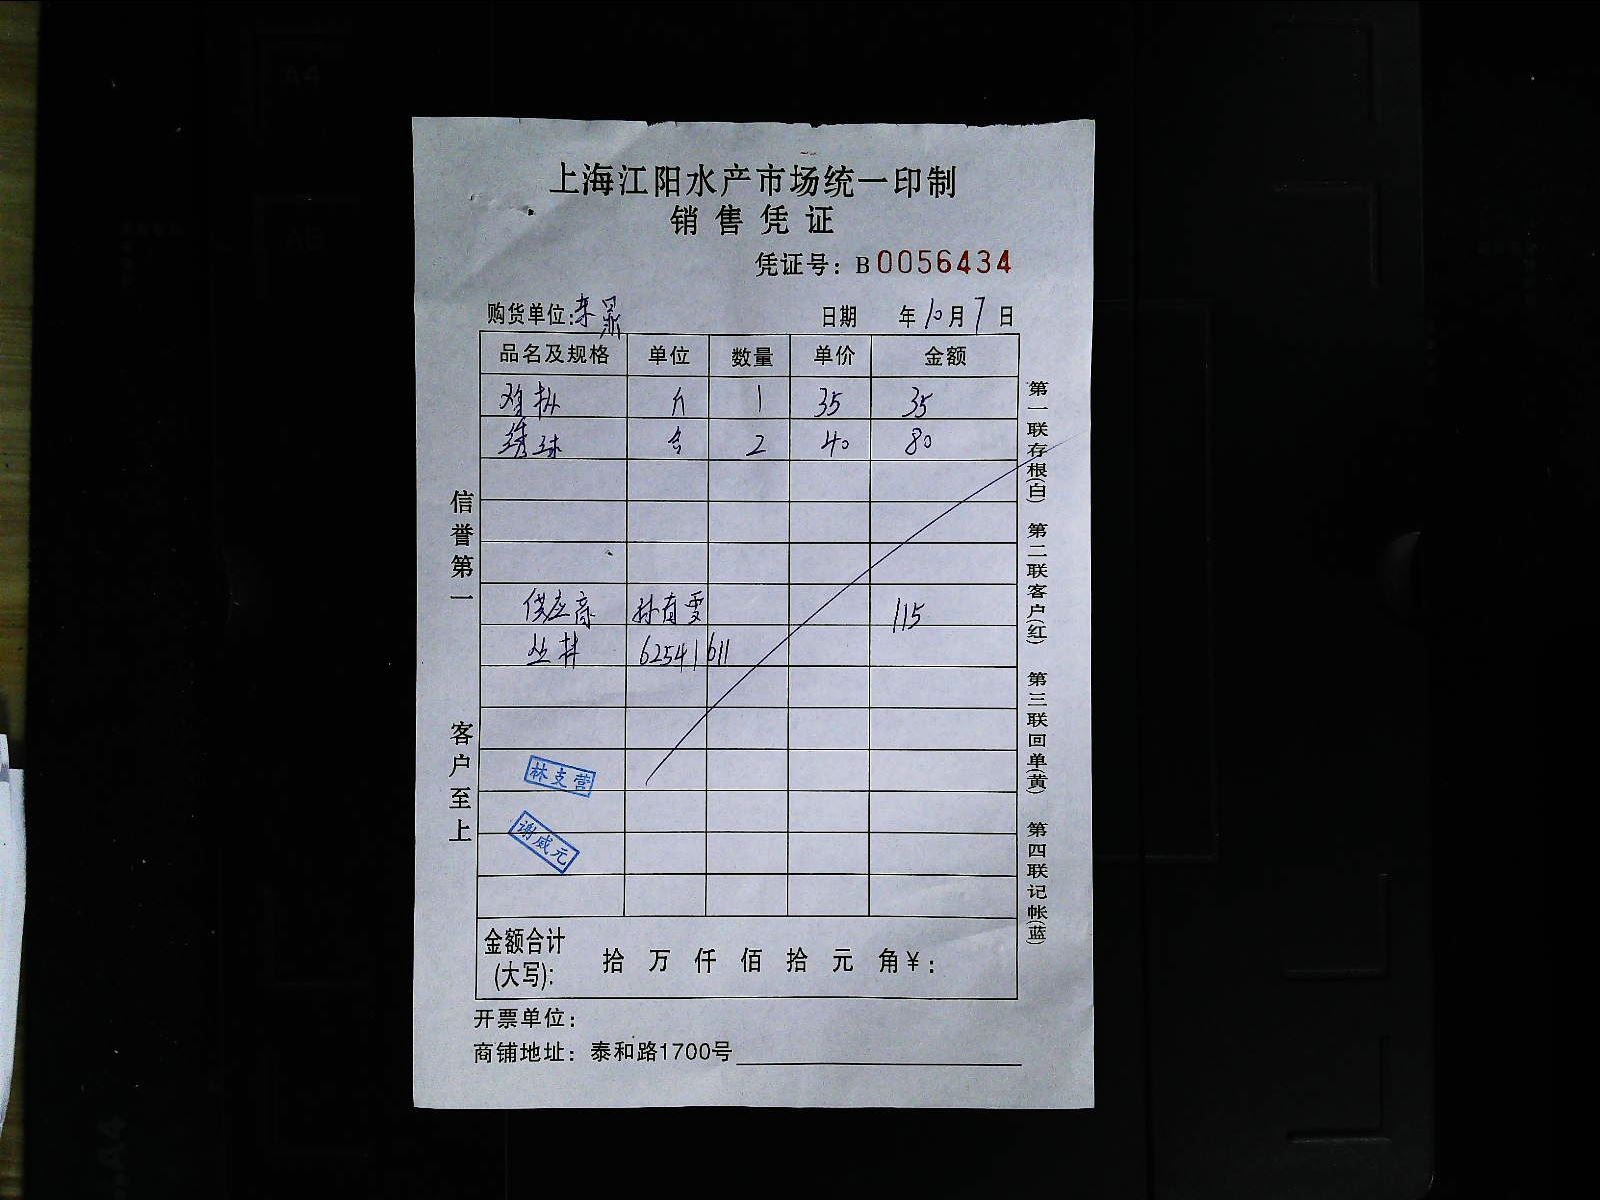 上海江阳水产市场统一印制
销售凭证
凭证号：B0056434
购货单位: 日期 年10月7日
品名及规格 单位 数量 单价 金额
斤 1 35 35
绣球 2 40 80
供应商 115
丛林 62541611
林支营
谢威元
金额合计
(大写): 拾 万 仟 佰 拾 元 角￥：
开票单位：
商铺地址：泰和路1700号
信誉第一 客户至上
第一联存根(白) 第二联客户(红) 第三联回单(黄) 第四联记帐(蓝)